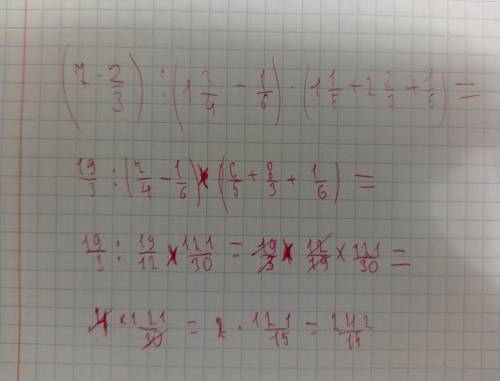 (7 - 2/3) : (1 3/4 - 1/6) · (1 1/5 + 2 2/3 + 1/6) =
19/3 : (7/4 - 1/6) × (6/5 + 8/3 + 1/6) =
19/3 : 19/12 × 121/30 = 19/3 × 12/19 × 121/30 =
4 × 121/30 = 2 · 121/15 = 242/15